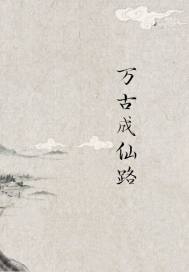 万古成仙路